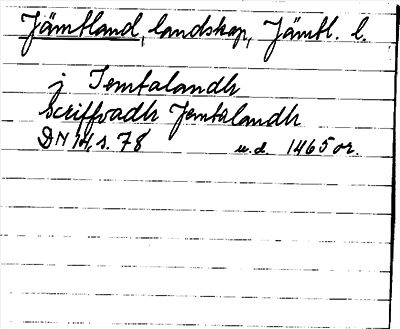 Jämtland, landskap, Jämtl. l.
j Jemtalandh
Scriffvadh Jemtalandh
DN 14, s. 78 u.d. 1465 or.